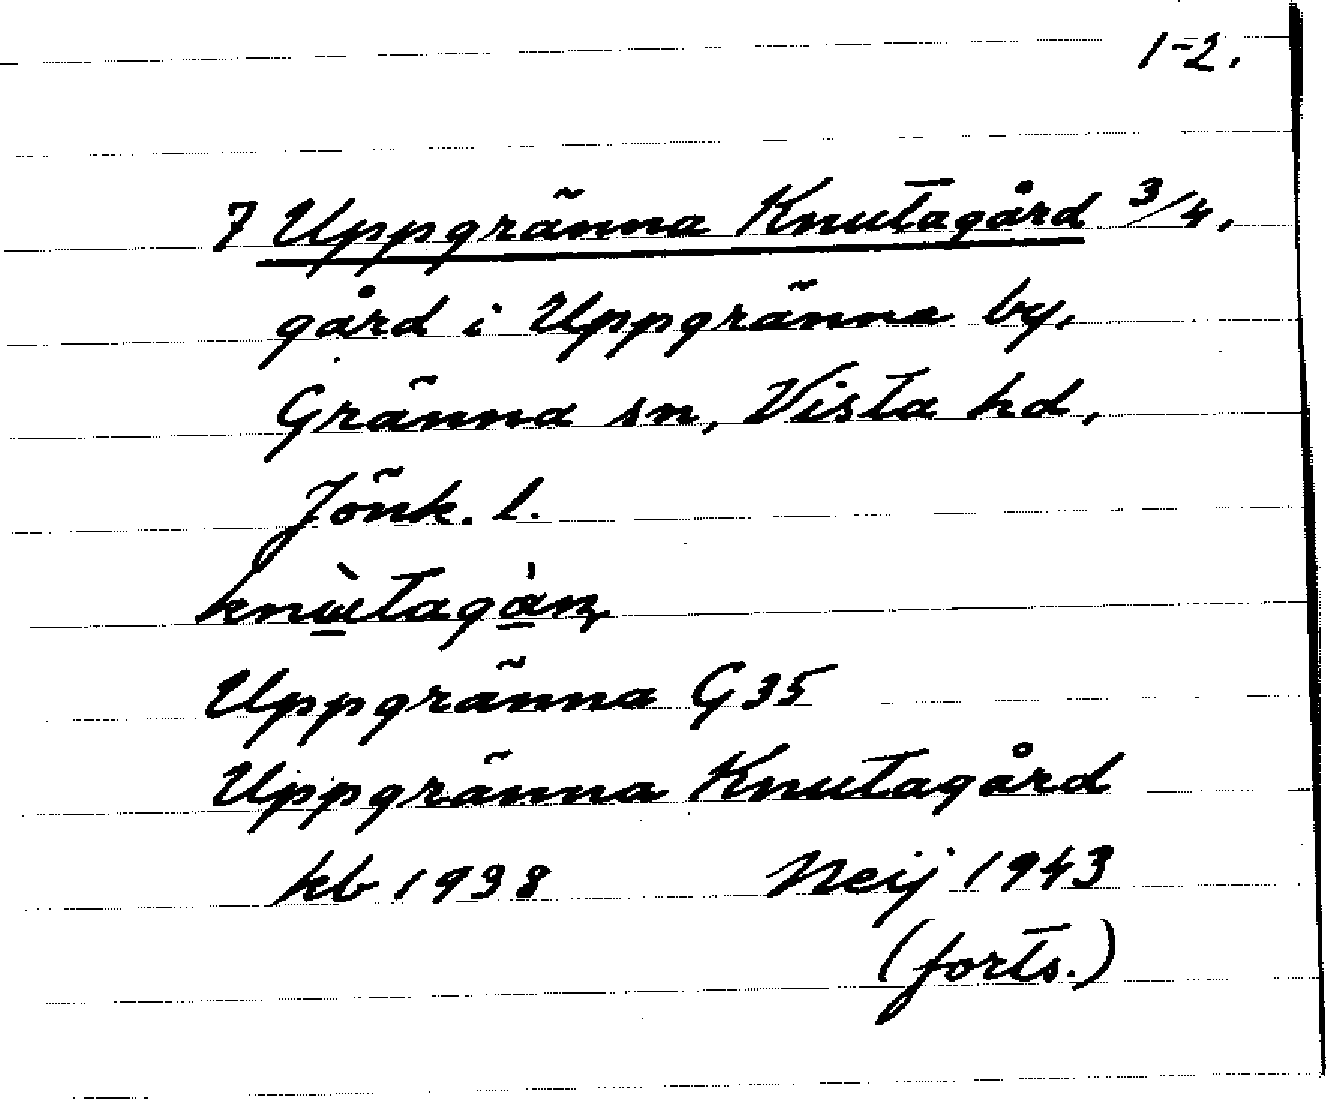 1-2.
7 Uppgränna Knutagård 3/4,
gård i Uppgränna by,
Gränna sn, Vista hd,
Jönk. l.
Uppgränna G35
Uppgränna Knutagård
kb 1938 Neij 1943
(forts.)